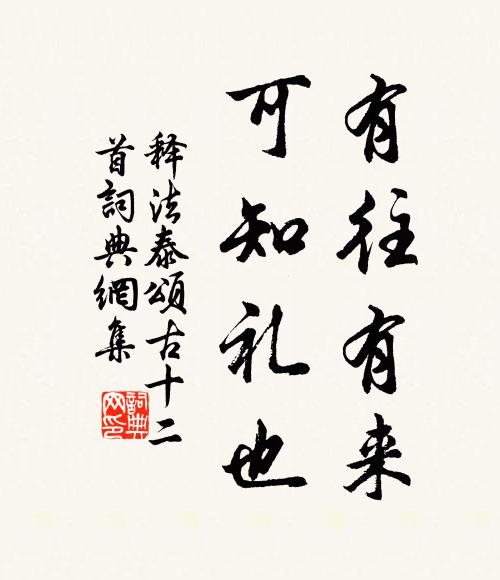 有往有来
可知礼也
释法泰頌古十二
首詞典網集
詞典
网印